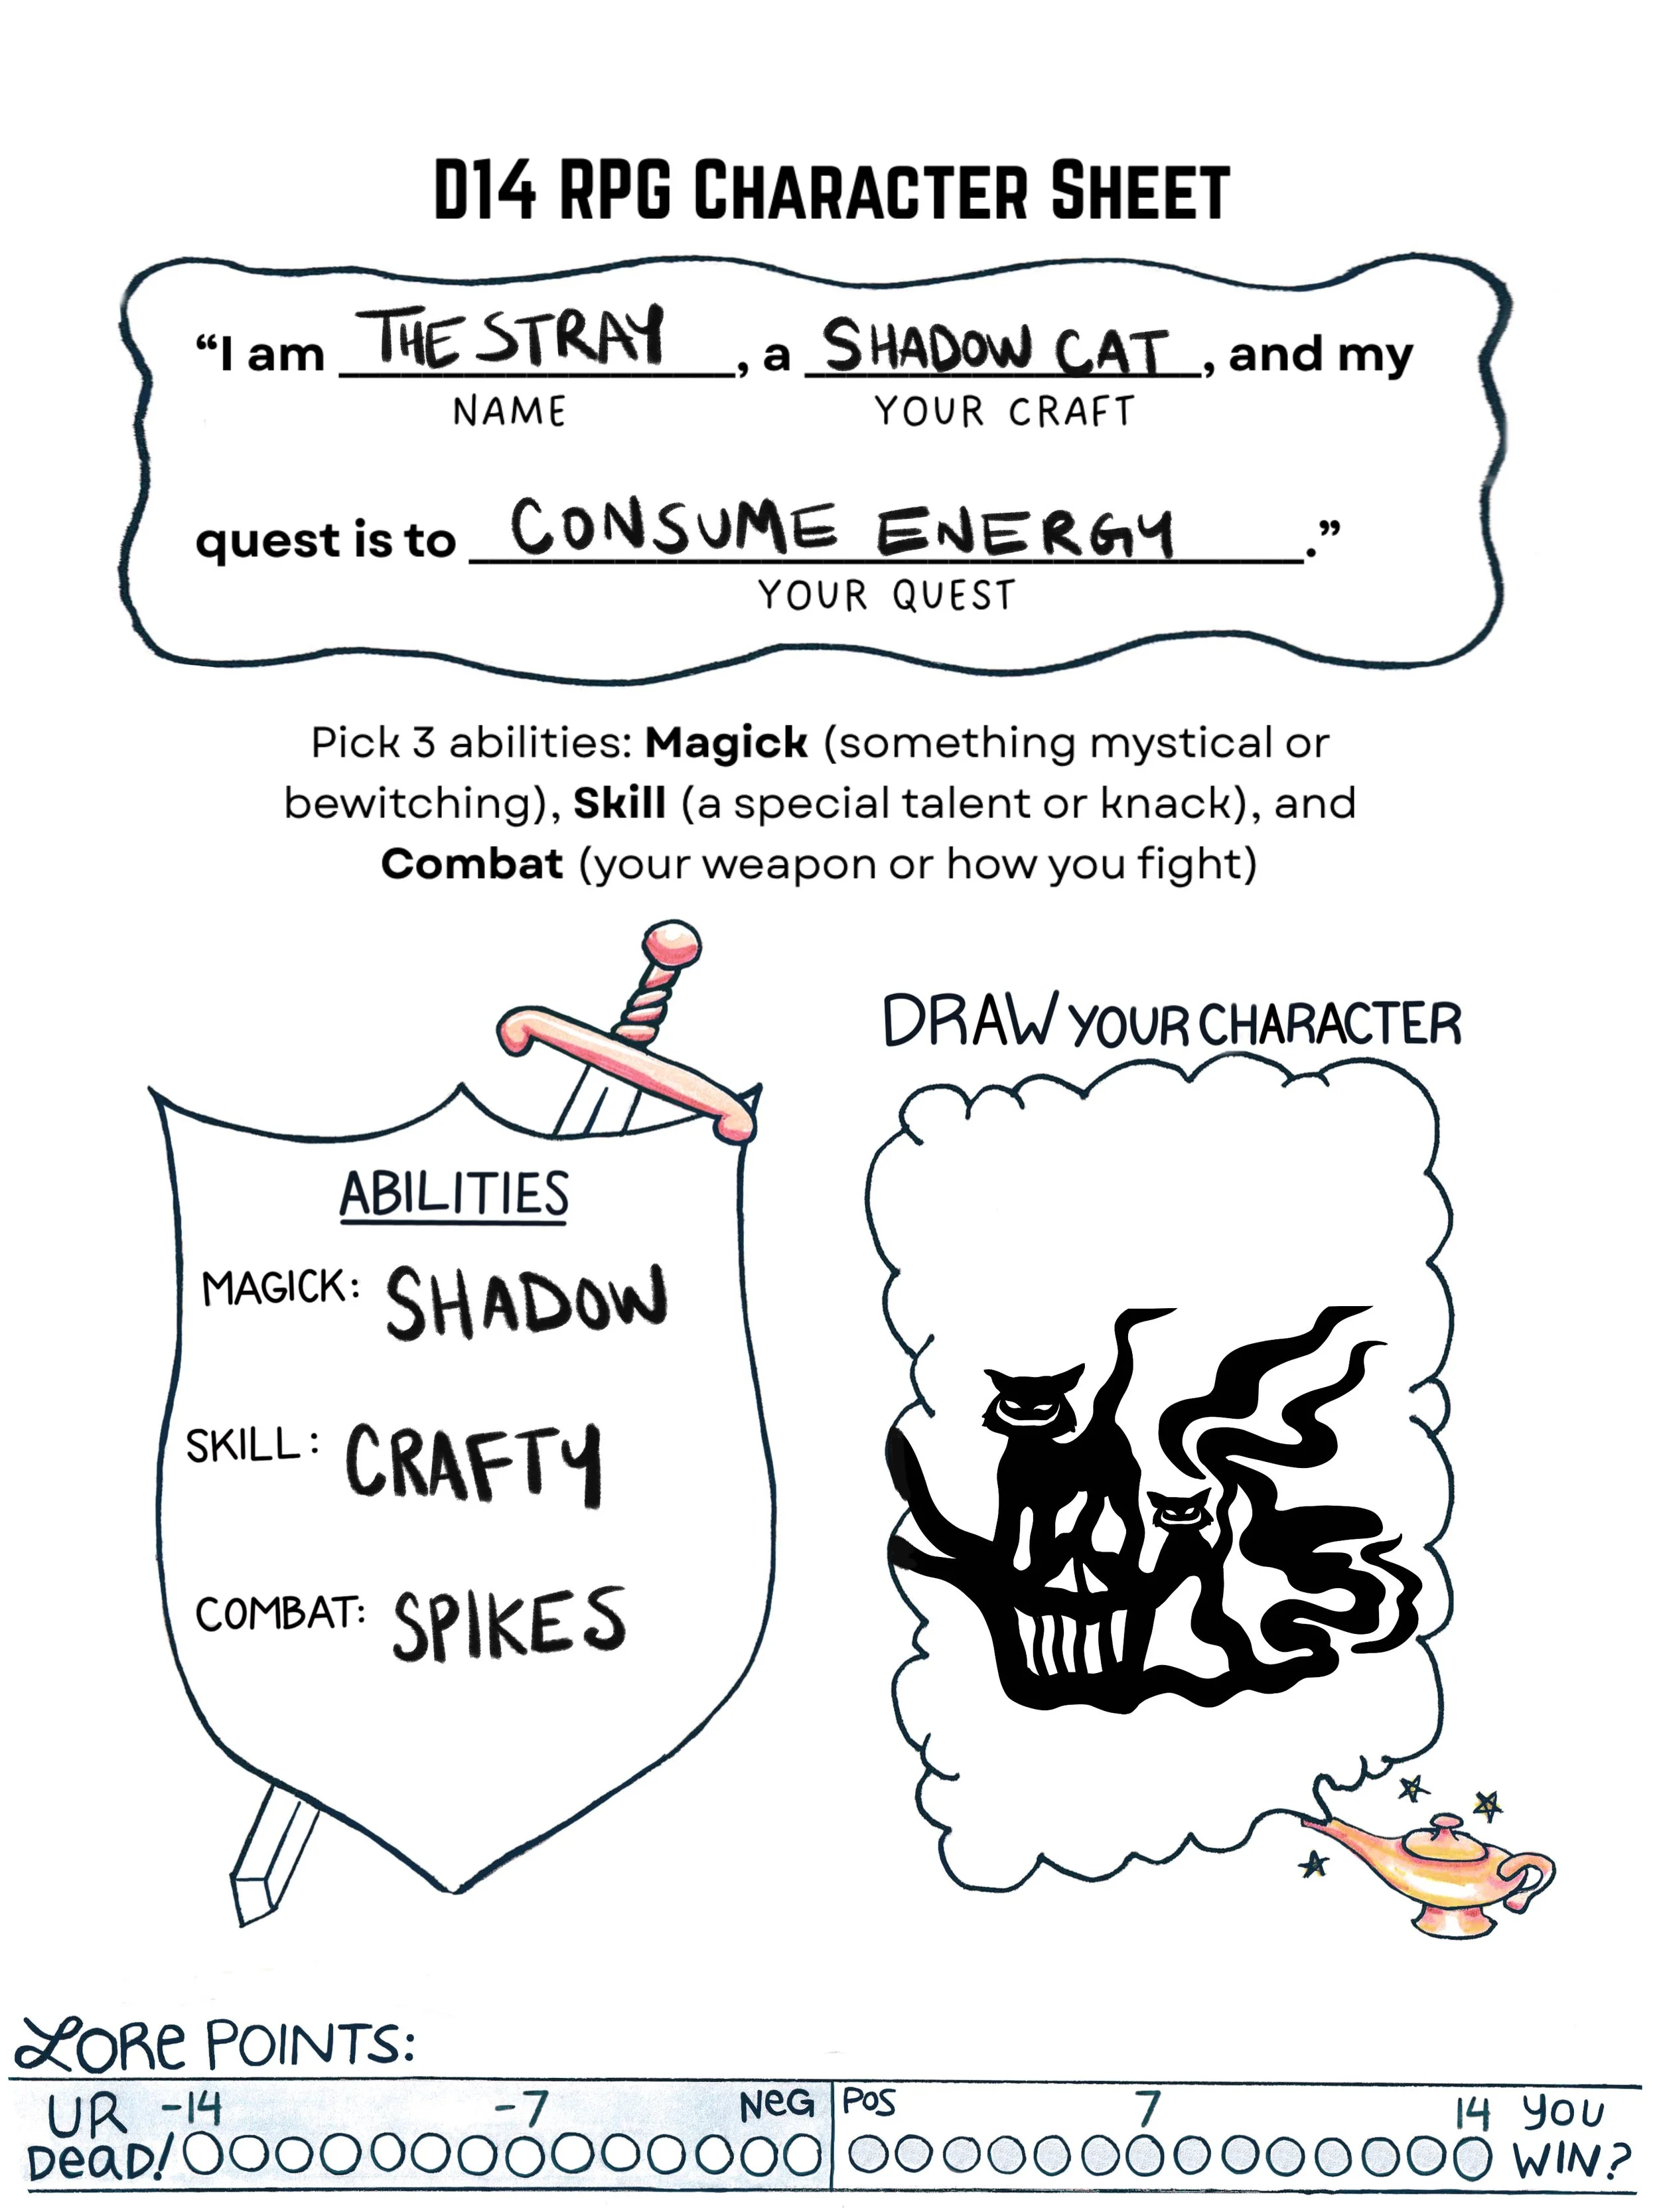 D14 RPG CHARACTER SHEET
“I am THE STRAY, a SHADOW CAT, and my
NAME YOUR CRAFT
quest is to CONSUME ENERGY.”
YOUR QUEST
Pick 3 abilities: Magick (something mystical or
bewitching), Skill (a special talent or knack), and
Combat (your weapon or how you fight)
DRAW YOUR CHARACTER
ABILITIES
MAGICK: SHADOW
SKILL: CRAFTY
COMBAT: SPIKES
LORe POINTS:
UR -14 -7 NeG POS 7 14 YOU
DeaD! WIN?